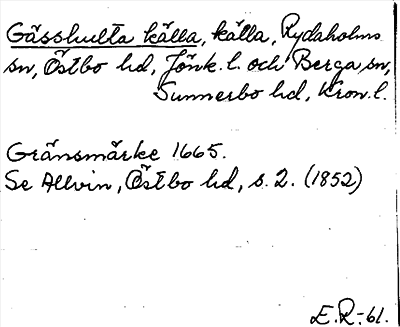 Gässhulta källa, källa, Rydaholms
sn, Östbo hd, Jönk. l. och Berga sn,
Sunnerbo hd, Kron. l.
Gränsmärke 1665.
Se Allvin, Östbo hd, s. 2. (1852)
E.R.-61.